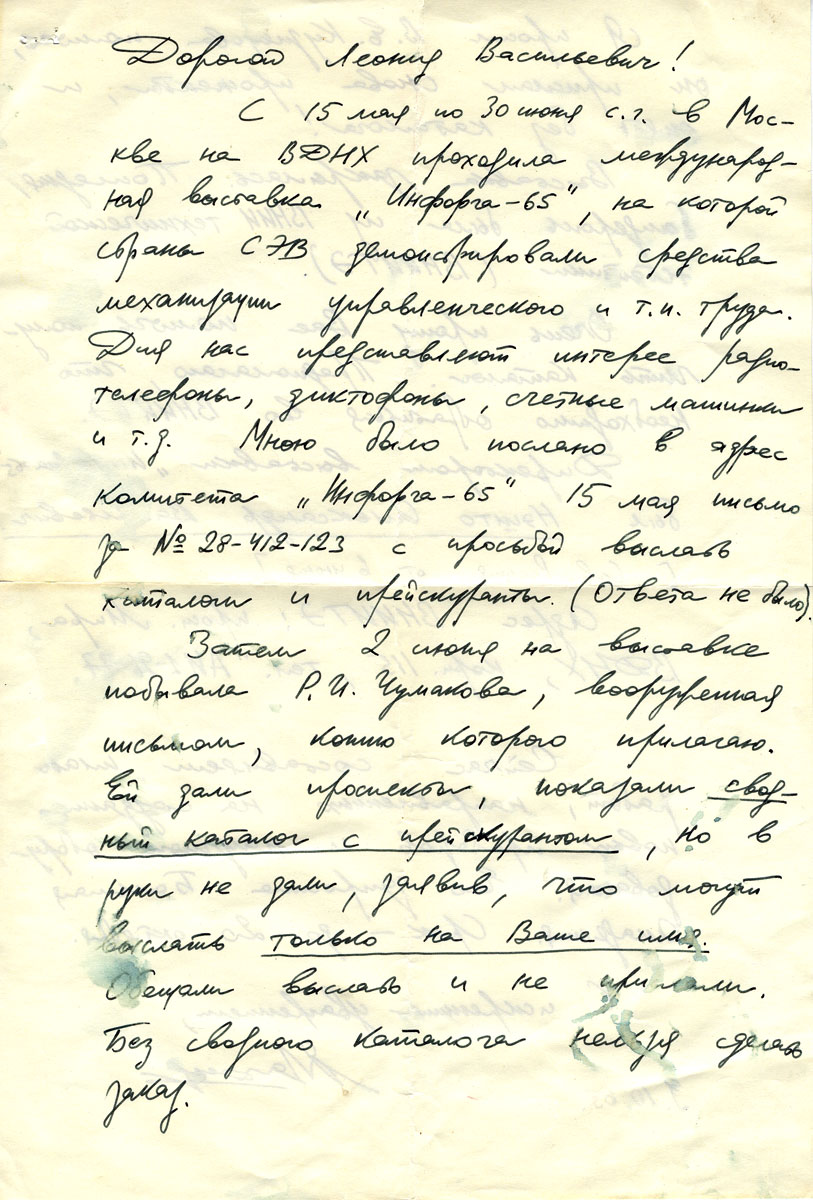 Дорогой Леонид Васильевич!
С 15 мая по 30 июня с.г. в Мос-
кве на ВДНХ проходила международ-
ная выставка „Инфорга-65", на которой
страны СЭВ демонстрировали средства
механизации управленческого и т.п. труда.
Для нас представляют интерес радио-
телефоны, диктофоны, счетные машинки
и т.д. Мною было послано в адрес
Комитета „Инфорга-65" 15 мая письмо
за № 28-412-123 с просьбой выслать
каталоги и прейскуранты. (Ответа не было).
Затем 2 июня на выставке
побывала Р.И. Чумакова, вооруженная
письмом, копию которого прилагаю.
Ей дали проспекты, показали свод-
ный каталог с прейскурантом, но в
руки не дали, заявив, что могут
выслать только на Ваше имя.
Обещали выслать и не прислали.
Без сводного каталога нельзя сделать
заказ.